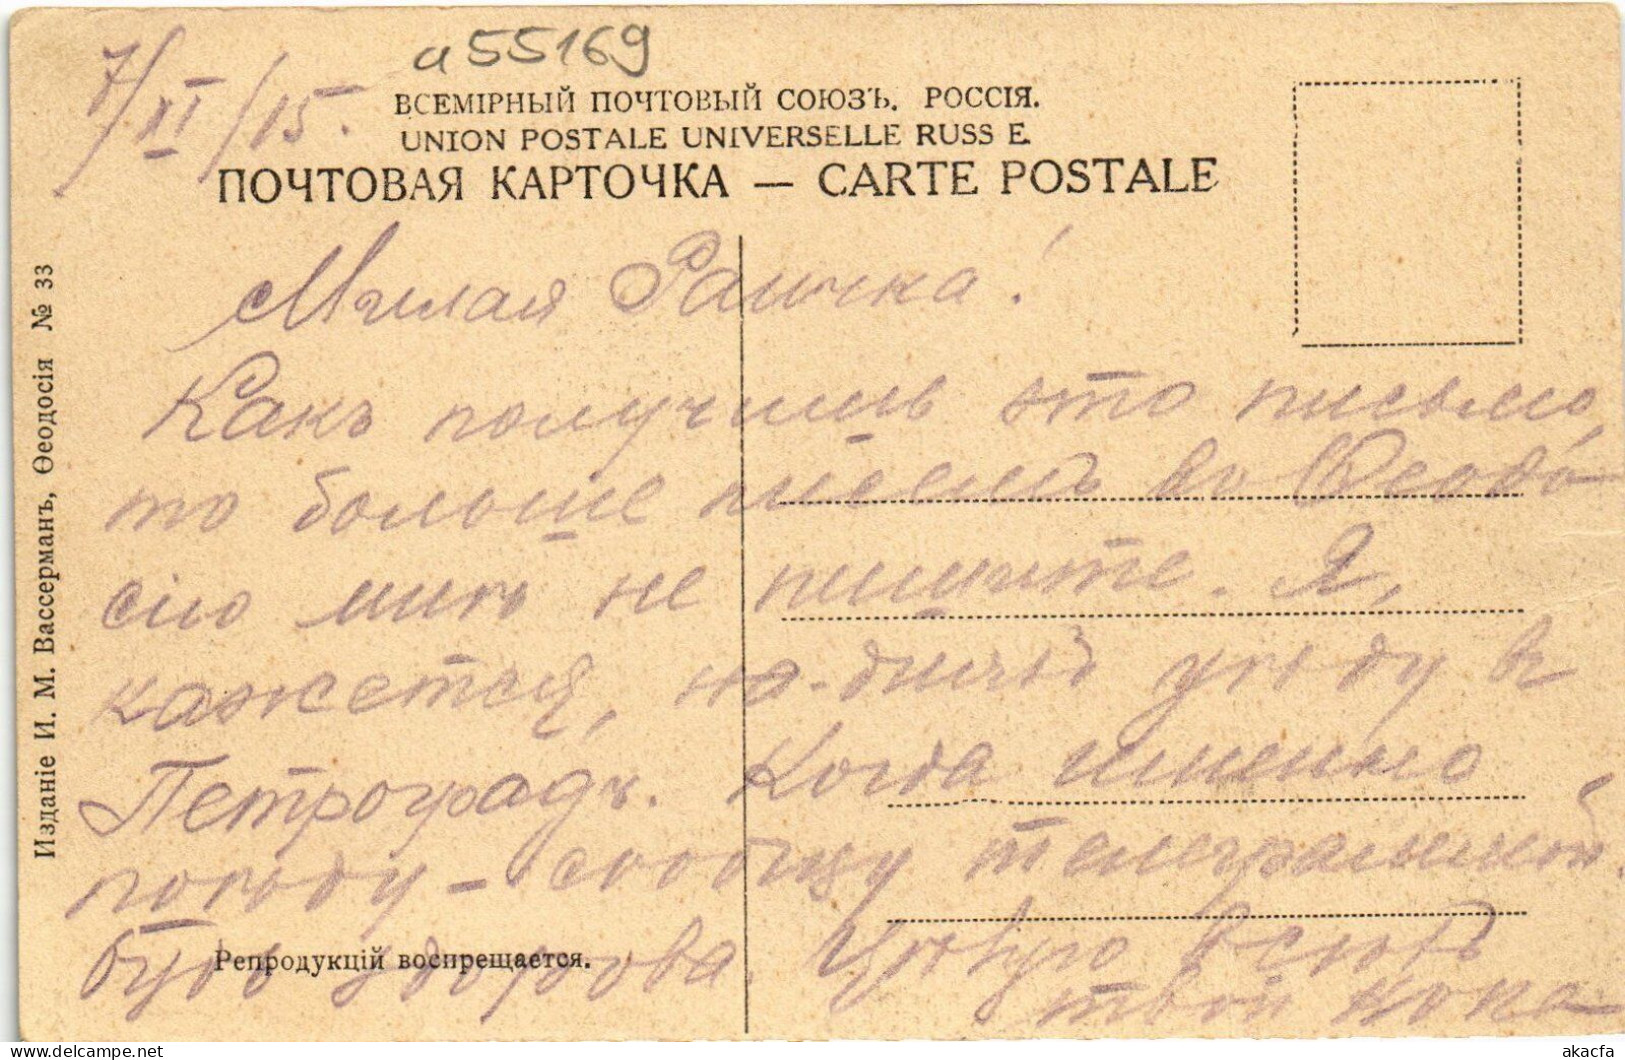 a55169
7/XI/15.
ВСЕМІРНЫЙ ПОЧТОВЫЙ СОЮЗЪ. РОССІЯ.
UNION POSTALE UNIVERSELLE RUSS E.
ПОЧТОВАЯ КАРТОЧКА — CARTE POSTALE
Милая Раичка!
Какъ получишь это письмо,
то больше писемъ въ Ѳеодо-
сію мнѣ не пишите. Я,
кажется, на-дняхъ уѣду въ
Петроградъ. Когда именно
поѣду – сообщу телеграммой.
Будь здорова. Цѣлую всѣхъ
твой
Репродукцій воспрещается.
Изданіе И. М. Вассерманъ, Ѳеодосія № 33
akacfa